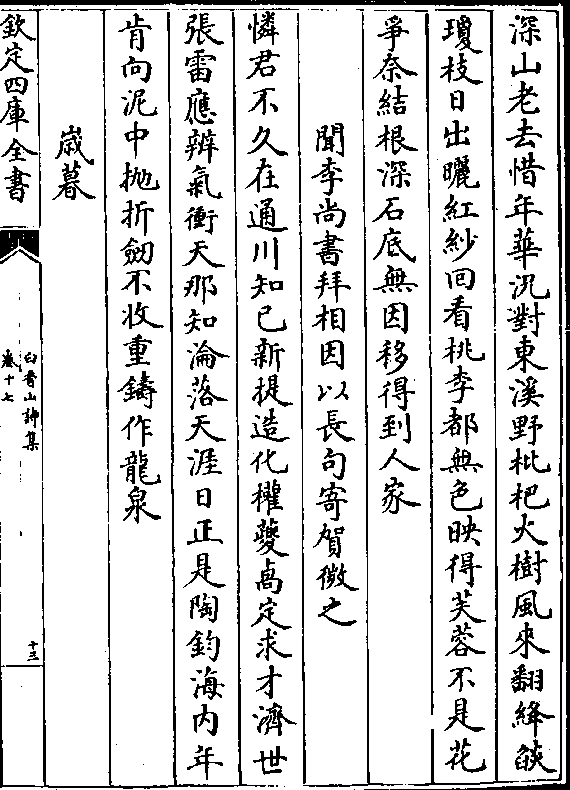 深山老去惜年華况對東溪野枇杷火樹風來翻絳燄
瓊枝日出曬紅紗回看桃李都無色映得芙蓉不是花
爭奈結根深石底無因移得到人家
聞李尚書拜相因以長句寄賀微之
憐君不久在通川知已新提造化權夔卨定求才濟世
張雷應辨氣衝天那知淪落天涯日正是陶鈞海内年
肯向泥中抛折劒不收重鑄作龍泉
歲暮
欽定四庫全書
白香山詩集
卷十七
十三